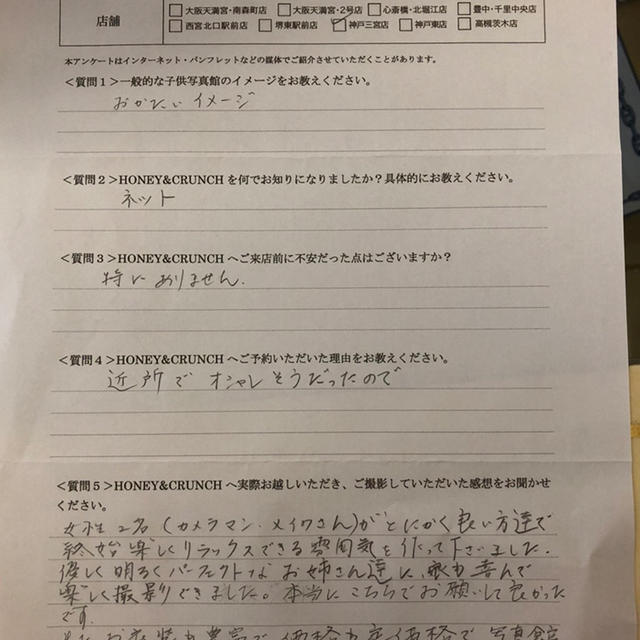 店舗
大阪天満宮・南森町店 大阪天満宮・2号店 心斎橋・北堀江店 豊中・千里中央店
西宮北口駅前店 堺東駅前店 神戸三宮店 神戸東店 高槻茨木店
本アンケートはインターネット・パンフレットなどの媒体でご紹介させていただくことがあります。
<質問1>一般的な子供写真館のイメージをお教えください。
おかたいイメージ
<質問2>HONEY&CRUNCHを何でお知りになりましたか?具体的にお教えください。
ネット
<質問3>HONEY&CRUNCHへご来店前に不安だった点はございますか?
特にありません.
<質問4>HONEY&CRUNCHへご予約いただいた理由をお教えください。
近所でオシャレそうだったので
<質問5>HONEY&CRUNCHへ実際お越しいただき、ご撮影していただいた感想をお聞かせ
ください。
女性2名(カメラマン・メイクさん)がとにかく良い方達で
終始楽しくリラックスできる雰囲気を作って下さいました.
優しく明るくパーフェクトなお姉さん達に、娘も喜んで
楽しく撮影できました。本当にこちらでお願いして良かった
です.
また、お衣装も豊富で価格も定価格で写真館